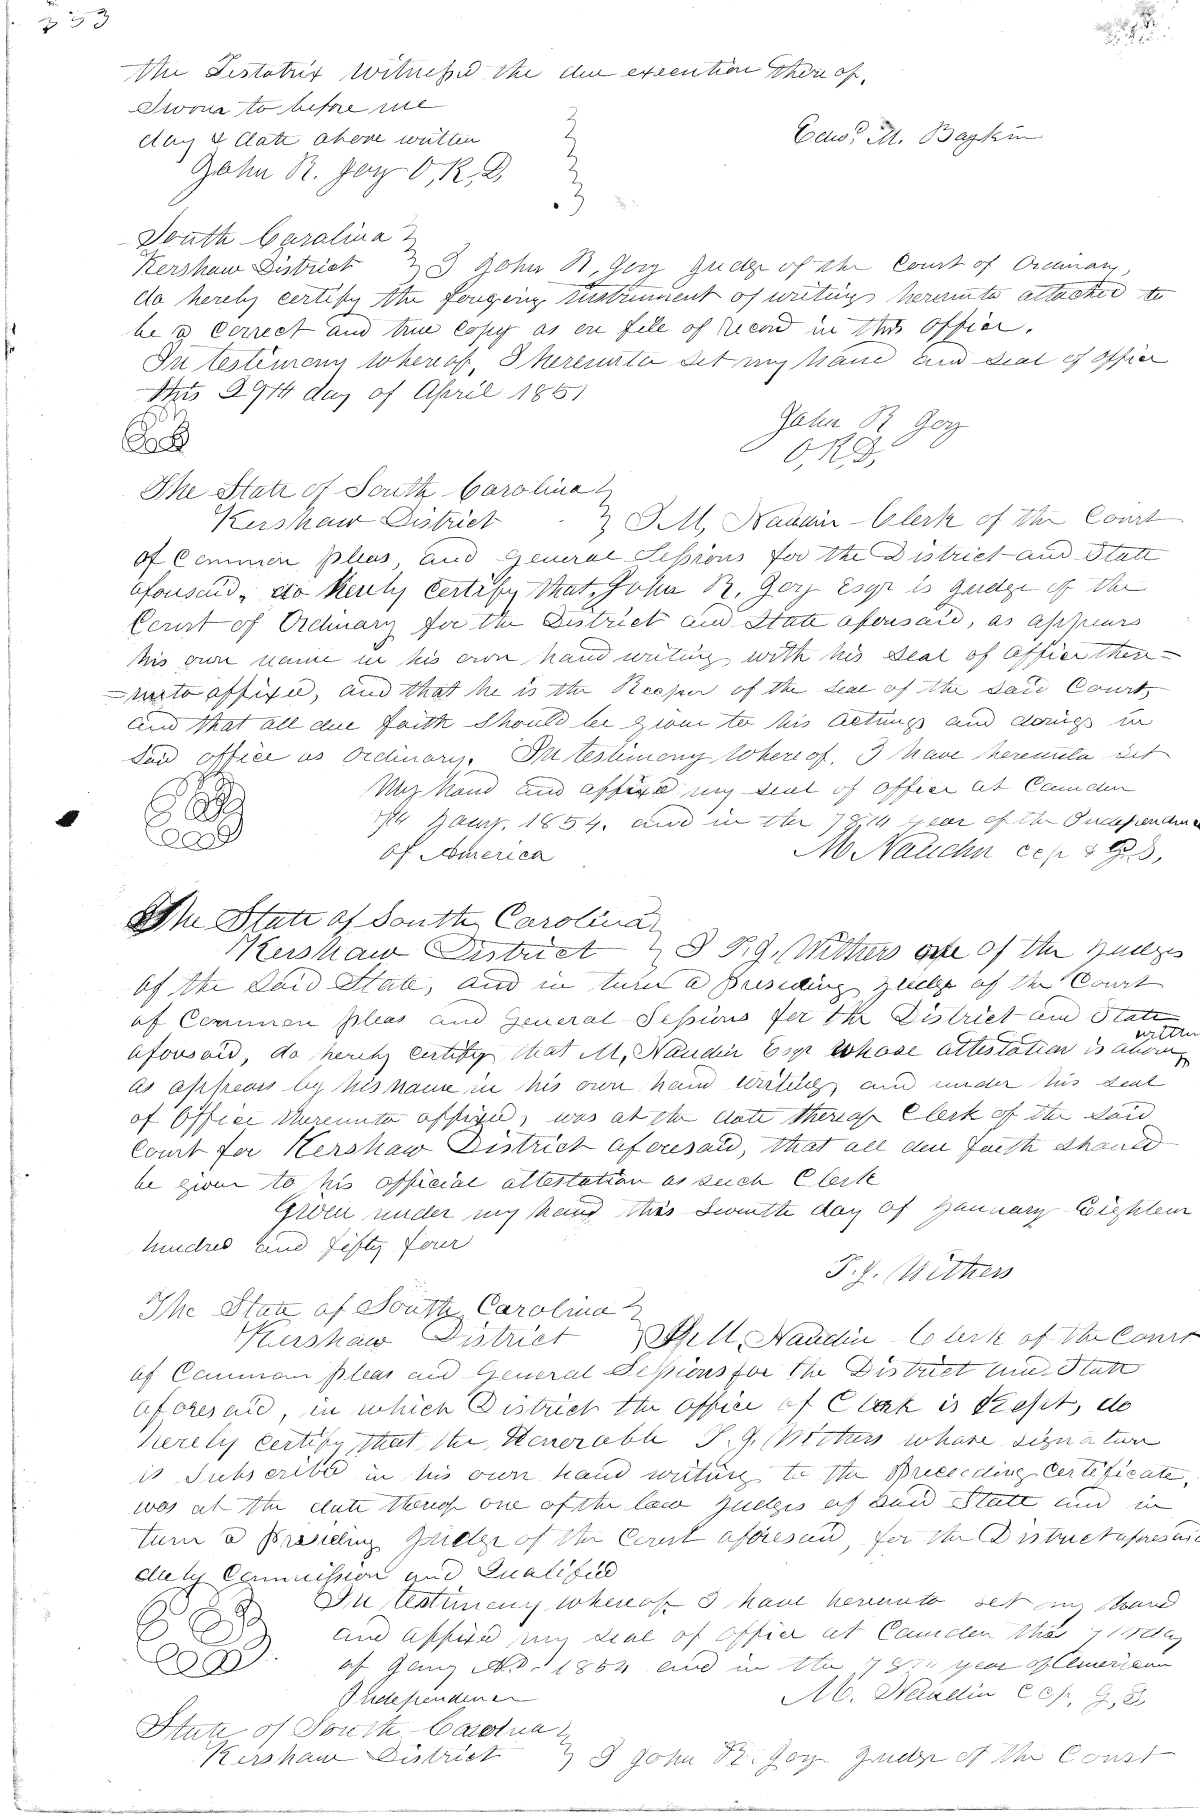 333
the Testatrix witnessed the due execution thereof.
Sworn to before me
day & date above written
Edwd. M. Baykin
John R. Joy O, K, D,
South Carolina
Kershaw District I John R. Joy Judge of the Court of Ordinary,
do hereby certify the forugoing instrument of writing hereunto attached to
be a correct and true copy as on file of record in this office.
In testimony whereof, I hereunto set my hand and seal of office
this 29th day of April 1851
John R Joy
O, K, D,
The State of South Carolina
Kershaw District I M, Naudin Clerk of the Court
of Common pleas, and General Sessions for the District and State
aforesaid, do hereby certify that, John R. Joy Esqr is Judge of the
Court of Ordinary for the District and State aforesaid, as appears
his own name in his own hand writing with his seal of office there=
=unto affixed, and that he is the Keeper of the seal of the said Court,
and that all due faith should be given to his actings and doings in
said office as ordinary. In testimony whereof, I have hereunto set
My hand and affixed my seal of office at Camden
7th Jany. 1854. and in the 78th year of the Independence
of America M. Naudin ccp & G.S,
The State of South Carolina
Kershaw District I T. J. Withers one of the Judges
of the said State, and in turn a presiding Judge of the Court
of Common pleas and General Sessions for the District and State
aforesaid, do hereby certify that M, Naudin Esqr whose attestation is above written
as appears by his name in his own hand writing and under his seal
of Office thereunto affixed, was at the date thereof Clerk of the said
Court for Kershaw District aforesaid, that all due faith should
be given to his official attestation as such Clerk
Given under my hand this Seventh day of January Eighteen
hundred and fifty four
T. J. Withers
The State of South Carolina
Kershaw District I M, Naudin Clerk of the Court
of Common pleas and General Sessions for the District and State
aforesaid, in which District the office of Clerk is Kept, do
hereby certify that the Honorable T. J. Withers whose signature
is Subscribed in his own hand writing to the Preceeding certificate,
was at the date thereof one of the law Judges of said State and in
turn a presiding Judge of the Court aforesaid, for the District aforesaid
duly Commission and Qualified
In testimony whereof I have hereunto set my hand
and affixed my seal of office at Camden this day
of Jany AD. 1854 and in the 78th year of American
Independence M. Naudin ccp, G, S
State of South Carolina
Kershaw District I John R. Joy Judge of the Court